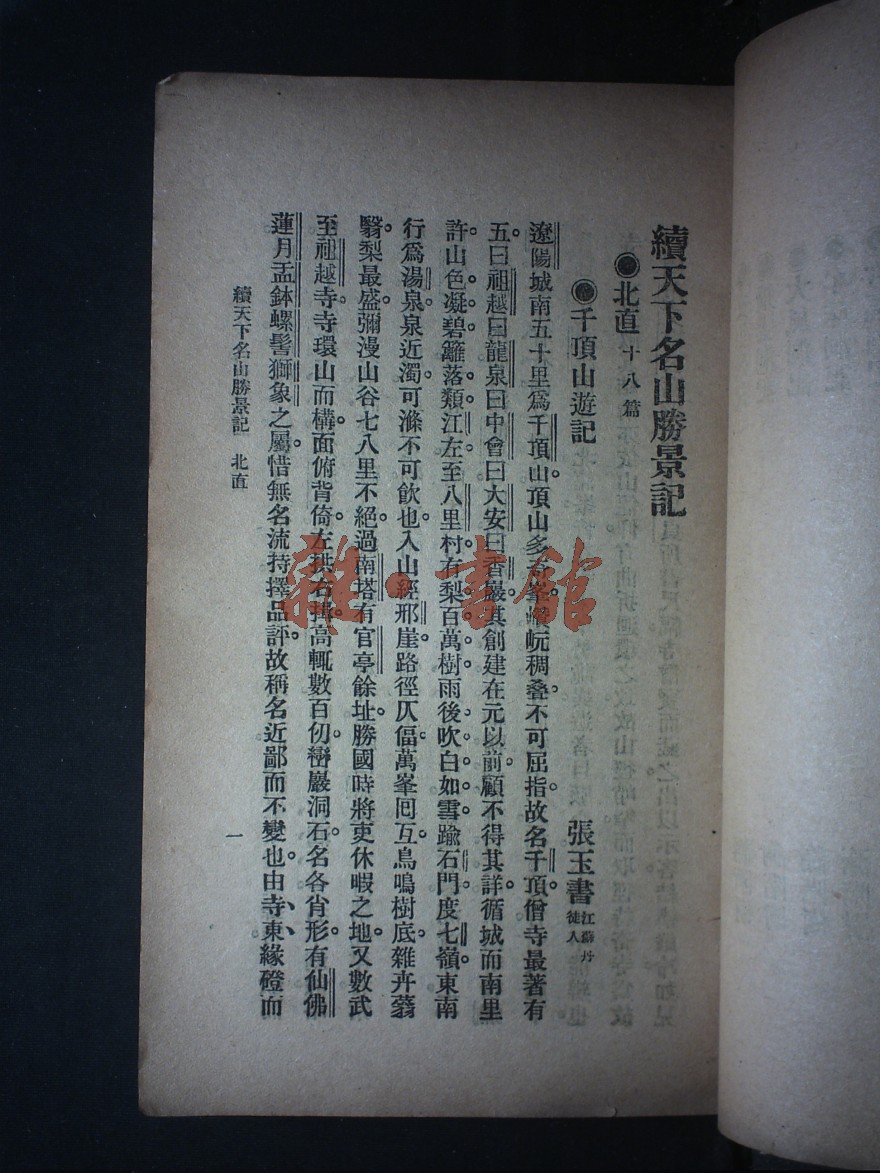 續天下名山勝景記
◉北直 十八篇
◉千頂山遊記 張玉書 江蘇丹徒人
遼陽城南五十里爲千頂山。頂山多奇峯。巑岏稠叠。不可屈指。故名千頂。僧寺最著有
五。曰祖越曰龍泉曰中會曰大安曰香巖。其創建在元以前。顧不得其詳。循城而南里
許。山色凝碧。籬落類江左。至八里村。有梨百萬樹。雨後吹白如雪。踰石門。度七嶺。東南
行爲湯泉。泉近濁。可滌不可飲也。入山經邢崖。路徑仄偪。萬峯囘互。鳥鳴樹底。雜卉蓊
翳。梨最盛。彌漫山谷。七八里不絕。過南塔有官亭餘址。勝國時將吏休暇之地。又數武
至祖越寺。寺環山而構。面俯背倚。左拱右揖。高輒數百仞。巒巖洞石。名各肖形。有仙佛
蓮月盂鉢螺髻獅象之屬。惜無名流持擇品評。故稱名近鄙而不變也。由寺東緣磴而
續天下名山勝景記 北直
一
雜·書館